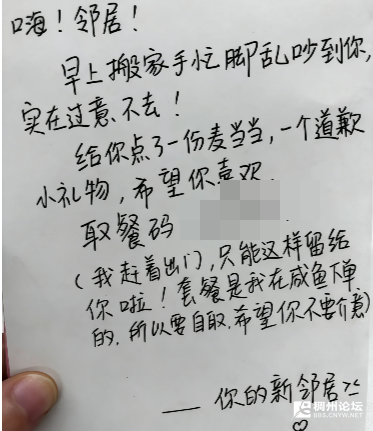 嗨！邻居！
早上搬家手忙脚乱吵到你,
实在过意不去！
给你点了一份麦当当,一个道歉
小礼物,希望你喜欢.
取餐码
(我赶着出门,只能这样留给
你啦！套餐是我在咸鱼下单
的,所以要自取.希望你不要介意)
——你的新邻居
稠州论坛
BBS.CNYW.NET